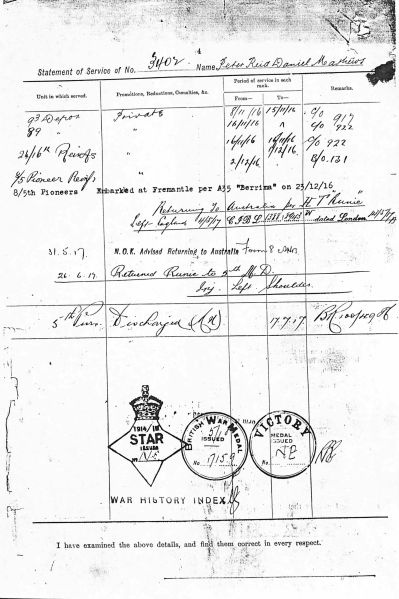 4
Statement of Service of No. 3402 Name Peter Reid Daniel Mathews
Unit in which served. Promotions, Reductions, Casualties, &c. Period of service in each rank. From— To— Remarks.
93 Depot Private 8/11/16 15/11/16 C/O 917
89 " " 16/11/16 " C/O 922
26/16th Reinfs " 16/11/16 1/12/16 C/O 922
" 2/12/16 B/O.131
8/5 Pioneer Reinfs
8/5th Pioneers Embarked at Fremantle per A35 "Berrima" on 23/12/16
Returning To Australia per H T "Runic"
Left England C.I.B.L. dated London
31.5.17. N.O.K. Advised Returning to Australia Form 8
26.6.17. Returned Runic to 5th M.D.
Inj. Left Shoulder.
5th Discharged 17.7.17.
1914/15
STAR
ISSUED
No N/E
BRITISH WAR MEDAL
ISSUED
No 7159
VICTORY
MEDAL
ISSUED
No NE
WAR HISTORY INDEX
I have examined the above details, and find them correct in every respect.